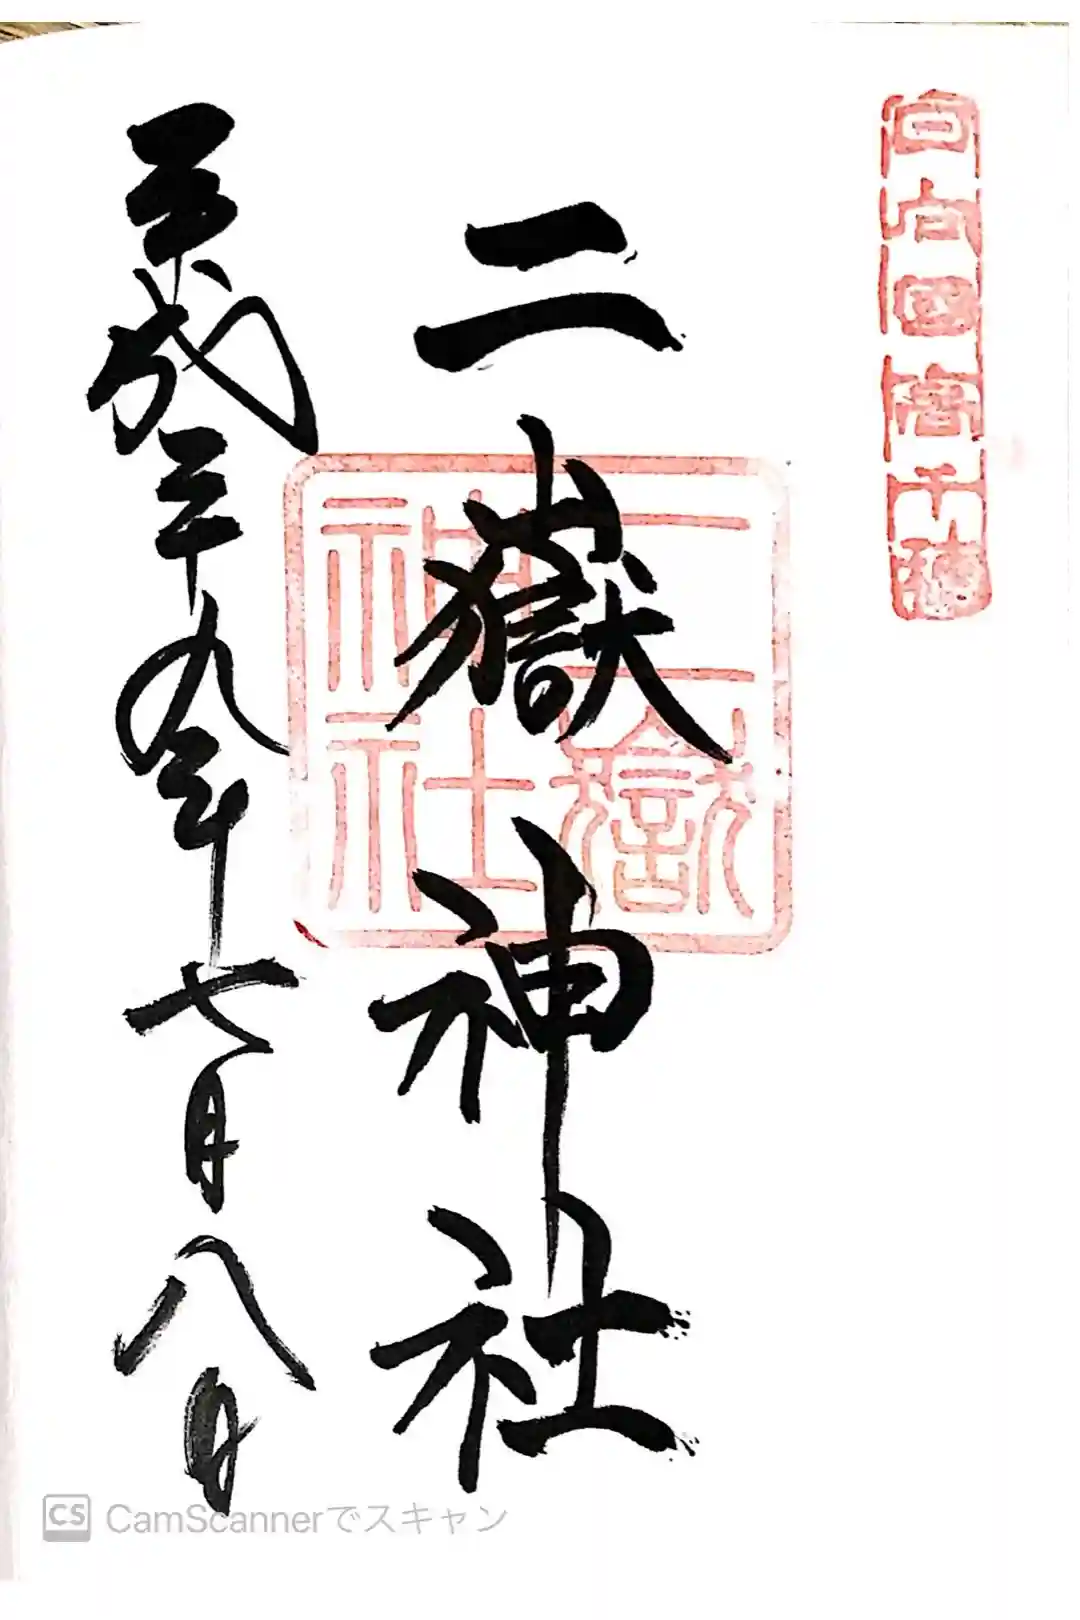 日向國高千穂
二嶽神社
二嶽
神社
平成二十九年七月八日
CS CamScannerでスキャン